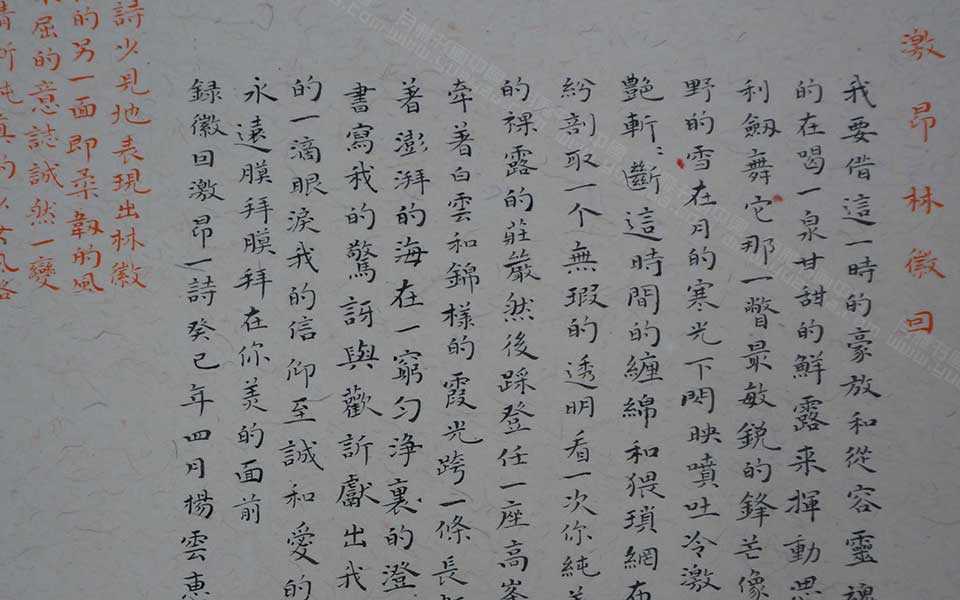 激昂 林徽回
我要借這一時的豪放和從容靈魂
的在喝一泉甘甜的鮮露来揮動思
利劔舞它那一瞥最敏銳的鋒芒像
野的雪在月的寒光下閃映噴吐冷激
艷斬:斷這時間的纏綿和猥瑣網在
紛剖取一个無瑕的透明看一次你純美
的裸露的莊嚴然後踩登任一座高峯
牽着白雲和錦樣的霞光跨一條長
著澎湃的海在一窮匀浄裏的澄
書寫我的驚訝與歡訢獻出我
的一滴眼淚我的信仰至誠和愛的
永遠膜拜膜拜在你美的面前
録徽回激昂一詩癸巳年四月楊雲惠
詩少見地表現出林徽
的另一面即柔韌的風
屈的意誌誠然一變